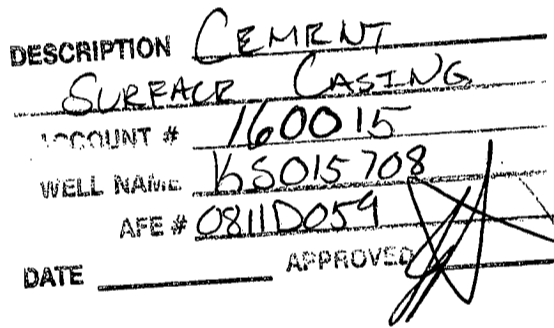 DESCRIPTION CEMENT
SURFACE CASING
ACCOUNT # 160015
WELL NAME KS015708
AFE # 0811D059
DATE APPROVED